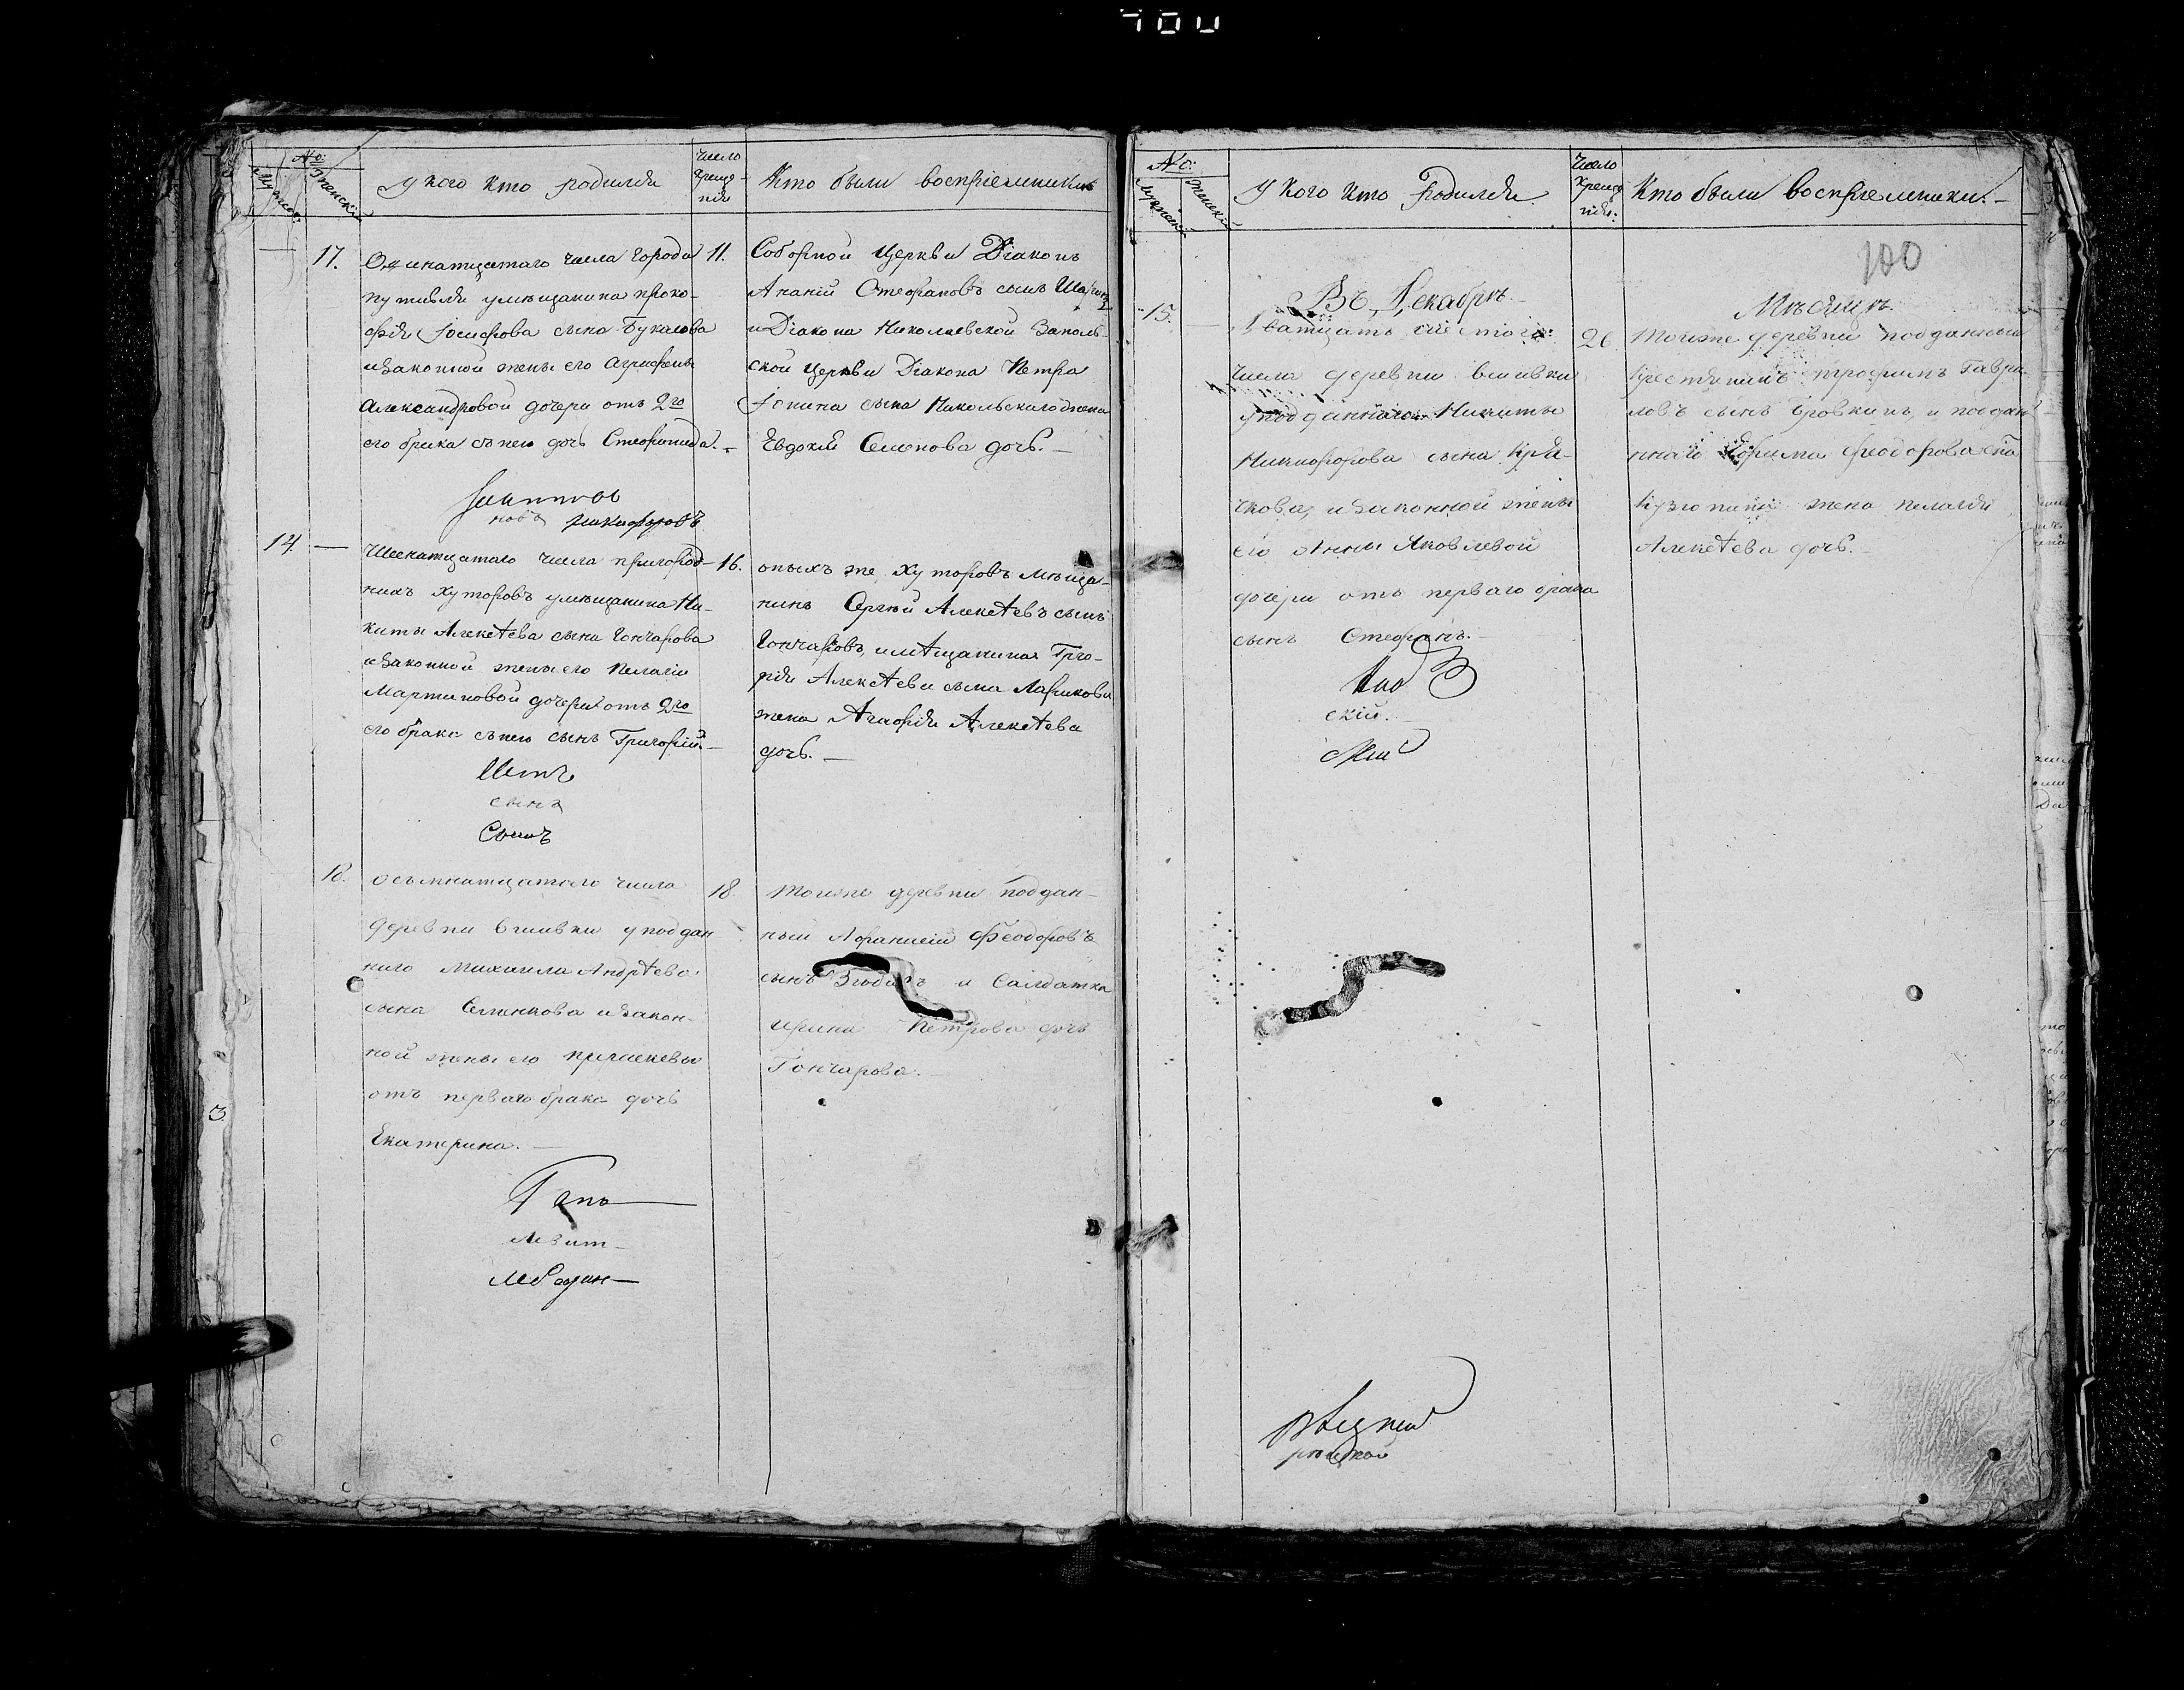 No:
Мужеск:
Женскій
У кого кто родился
Число
Креще-
нія
Кто были воспріемники
17.
Одинатцетаго числа города
Путивля умещанина Проко-
фія Іосифова сына Букалова
изаконной жены его Агрифены
Александровой дочери отъ 2го
его брака снею дочь Стефанида. -
11.
Соборной Церкви Діаконъ
Ананій Стефановъ сынъ
и Діакона Николаевской Заполь-
ской Церкви Діакона Петра
Іонина сына Никольскаго жена
Евдокія Семенова дочь. -
новъ Никифоровъ
14. -
Шеснатцатаго числа пригород-
нихъ хуторовъ умещанина Ни-
киты Алексѣева сына Гончарова
изаконной жены его Пелагіи
Мартиновой дочери отъ 2го
его брака снею сынъ Григорій. -
16.
оныхъ же хуторовъ меща-
нинъ Сергѣй Алексѣевъ сынъ
Гончаровъ, имѣщанина Григо-
рія Алексѣева сына Ларикова
жена Агафія Алексѣева
дочь. -
сынъ
Сынъ
18.
осьмнатцатого числа
деревни вшивки уподдан
наго Михаила Андрѣева
сына Семенкова изакон-
ной жены его Праскевы
отъ перваго брака дочь
Екатерина. -
18
тоиже деревни поддан-
ный Афанасій Феодоровъ
сынъ и Салдатка
Ирина Петрова дочь
Гончарова. -
3
No:
мужескій
женскій
У кого кто родился
Число
Креще
нія:
Кто были воспріемники. -
100
Въ Декабрѣ
Мѣсяцѣ.
15.
Дватцать шестого
числа деревни вшивки
уподданнаго Никиты
Никифорова сына Кря-
чкова, изаконной жены
его Анны Яковлевой
дочери отъ перваго брака
сынъ Стефанъ. -
26.
тоиже деревни подданный
Крестянинъ Трофимъ Гаври-
ловъ сынъ Бровкинъ, и поддан
ннаго Ефима Феодорова сна
жена Пелагія
Алексѣева дочь. -
скій. -